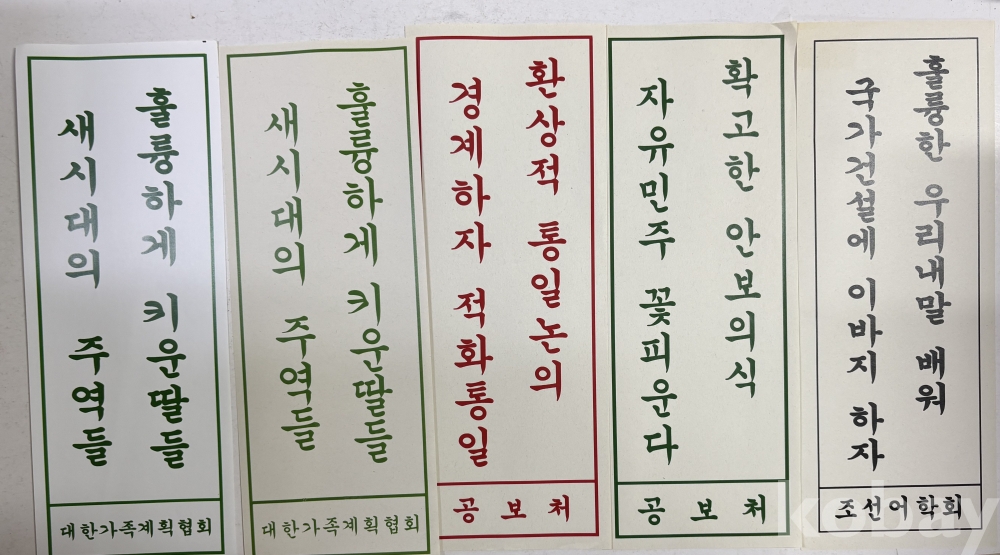 훌륭하게 키운딸들
새시대의 주역들
대한가족계획협회
훌륭하게 키운딸들
새시대의 주역들
대한가족계획협회
환상적 통일논의
경계하자 적화통일
공보처
확고한 안보의식
자유민주 꽃피운다
공보처
훌륭한 우리내말 배워
국가건설에 이바지 하자
조선어학회
kobay